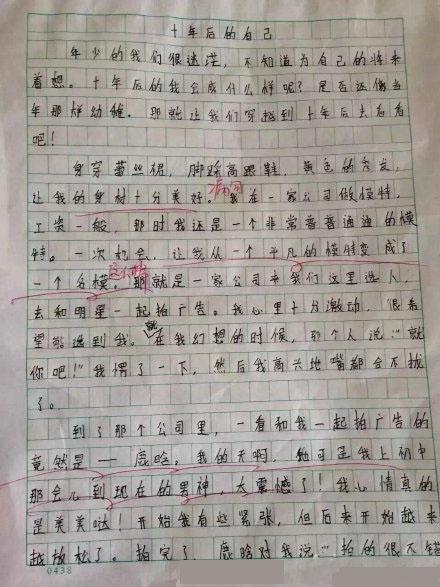 十年后的自己
年少的我们很迷茫，不知道为自己的将来
着想。十年后的我会成什么样呢？是否还像当
年那样幼稚。那就让我们穿越到十年后去看看
吧！
身穿蕾丝裙，脚踩高跟鞋，黄色的卷发，
让我的身材十分美好。我在一家公司做模特，
工资一般，那时我还是一个非常普普通通的模
特。一次机会，让我从一个平凡的模特变成了
一个名模。那就是一家公司来我们这里选人，
去和明星一起拍广告。我心里十分激动，很希
望能选到我。就在我幻想的时候，那个人说：“就
你吧！”我愣了一下，然后我高兴地嘴都合不拢
了。
到了那个公司里，一看和我一起拍广告的
竟然是——鹿晗。我的天啊，他可是我上初中
那会儿到现在的男神，太震憾了！我心情真的
是美美哒！开始我有些紧张，但后来开始越来
越放松了。拍完了，鹿晗对我说：“拍的很不错
0438